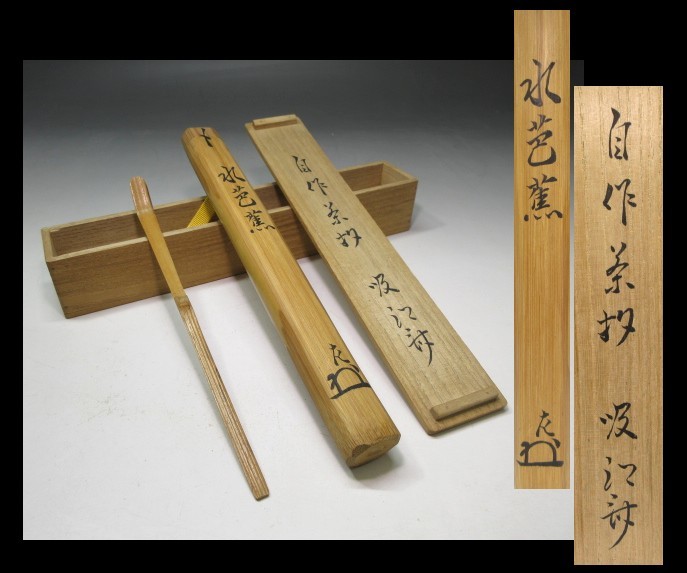 水芭蕉
自作茶杓 吸江斎
水芭蕉
自作茶杓 吸江斎